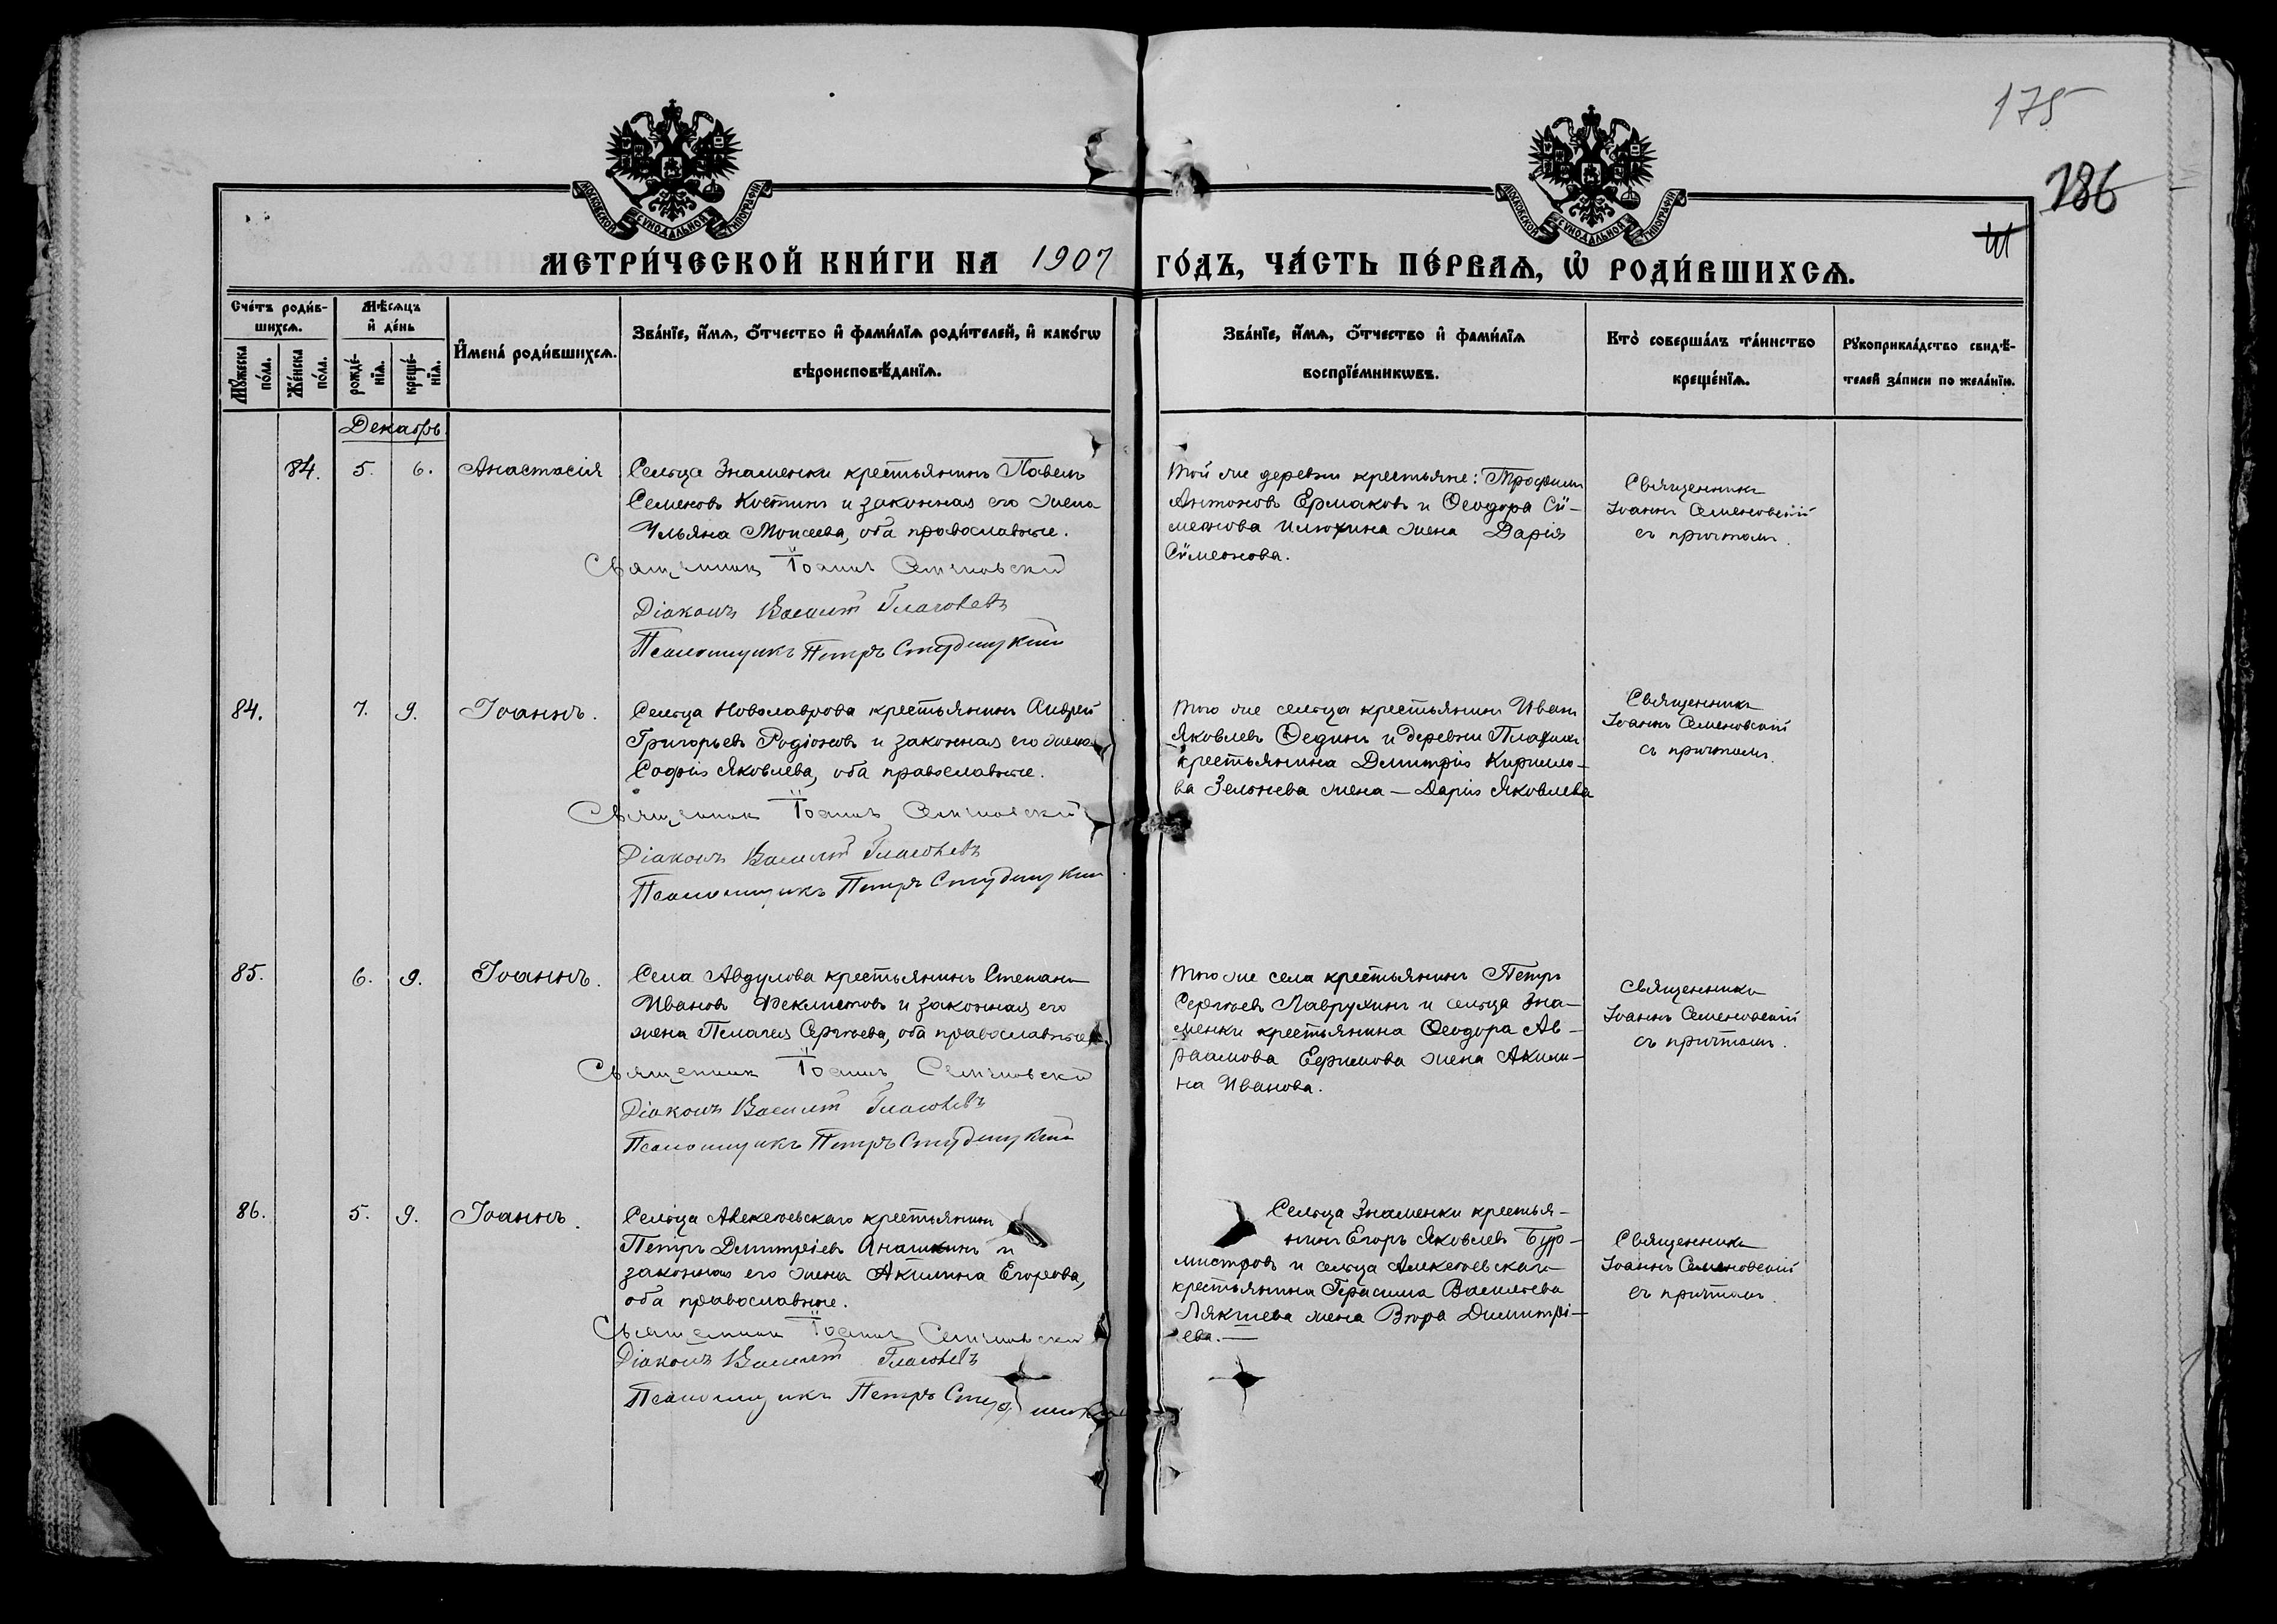 175
186
МОСКОВСКОЙ СѴНОДАЛЬНОЙ ТИПОГРАФІИ
МОСКОВСКОЙ СѴНОДАЛЬНОЙ ТИПОГРАФІИ
МЕТРИ́ЧЕСКОЙ КНИ́ГИ НА 1907 ГО́ДЪ, ЧА́СТЬ ПЕ́РВАѦ, Ѡ҆ РОДИ́ВШИХСѦ.
Сче́тъ роди́в-
шихсѧ.
Мꙋ́жеска по́ла.
Же́нска по́ла.
Мѣ́сѧцъ
и҆ де́нь
рожде́-
нїѧ.
креще́-
нїѧ.
И҆мена̀ роди́вшихсѧ.
Зва́нїе, и҆́мѧ, ѻ҆́тчество и҆ фами́лїѧ роди́телей, и҆ како́гѡ
вѣроисповѣ́данїѧ.
Зва́нїе, и҆́мѧ, ѻ҆́тчество и҆ фами́лїѧ
воспрїе́мникѡвъ.
Кто̀ соверша́лъ та́инство
креще́нїѧ.
Рꙋкоприкла́дство свидѣ́-
телей за́писи по жела́нїю.
Декабрь.
84. 5. 6. Анастасія
Сельца Знаменки крестьянинъ Павелъ
Семеновъ Костинъ и законная его жена
Ульяна Моисеева, оба православные.
Священник Іоаннъ Семеновскій
Діаконъ Василій Глаголевъ
Псаломщикъ Петръ Студницкій
Той же деревни крестьяне: Трофимъ
Антоновъ Ермаковъ и Ѳеодора Сѵ-
меонова Илюхина жена Дарія
Сѵмеонова.
Священникъ
Іоаннъ Семеновскій
съ причтомъ.
84. 7. 9. Іоаннъ.
Сельца Новолаврова крестьянинъ Андрей
Григорьевъ Родіоновъ и законная его жена
Софія Яковлева, оба православные.
Священник Іоаннъ Семеновскій
Діаконъ Василій Глаголевъ
Псаломщикъ Петръ Студницкій
Того же сельца крестьянинъ Иванъ
Яковлевъ Ѳединъ и деревни
крестьянина Димитрія Кирилло-
ва Зеленева жена — Дарія Яковлева
Священникъ
Іоаннъ Семеновскій
съ причтомъ.
85. 6. 9. Іоаннъ.
Села Авдулова крестьянинъ Степанъ
Ивановъ Феклистовъ и законная его
жена Пелагея Сергѣева, оба православные
Священник Іоаннъ Семеновскій
Діаконъ Василій Глаголевъ
Псаломщикъ Петръ Студницкій
Того же села крестьянинъ Петръ
Сергѣевъ Лаврухинъ и сельца Зна-
менки крестьянина Ѳеодора Ав-
раамова Ефимова жена Акили-
на Иванова.
Священникъ
Іоаннъ Семеновскій
съ причтомъ.
86. 5. 9. Іоаннъ.
Сельца Алексѣевскаго крестьянинъ
Петръ Димитріевъ Анашкинъ и
законная его жена Акилина Егорова,
оба православные.
Священник Іоаннъ Семеновскій
Діаконъ Василій Глаголевъ
Псаломщикъ Петръ Студницкій
Сельца Знаменки крестья-
нинъ Егоръ Яковлевъ Бур-
мистровъ и сельца Алексѣевскаго
крестьянина Герасима Васильева
жена Вѣра Димитрі-
ева. —
Священникъ
Іоаннъ Семеновскій
съ причтомъ.